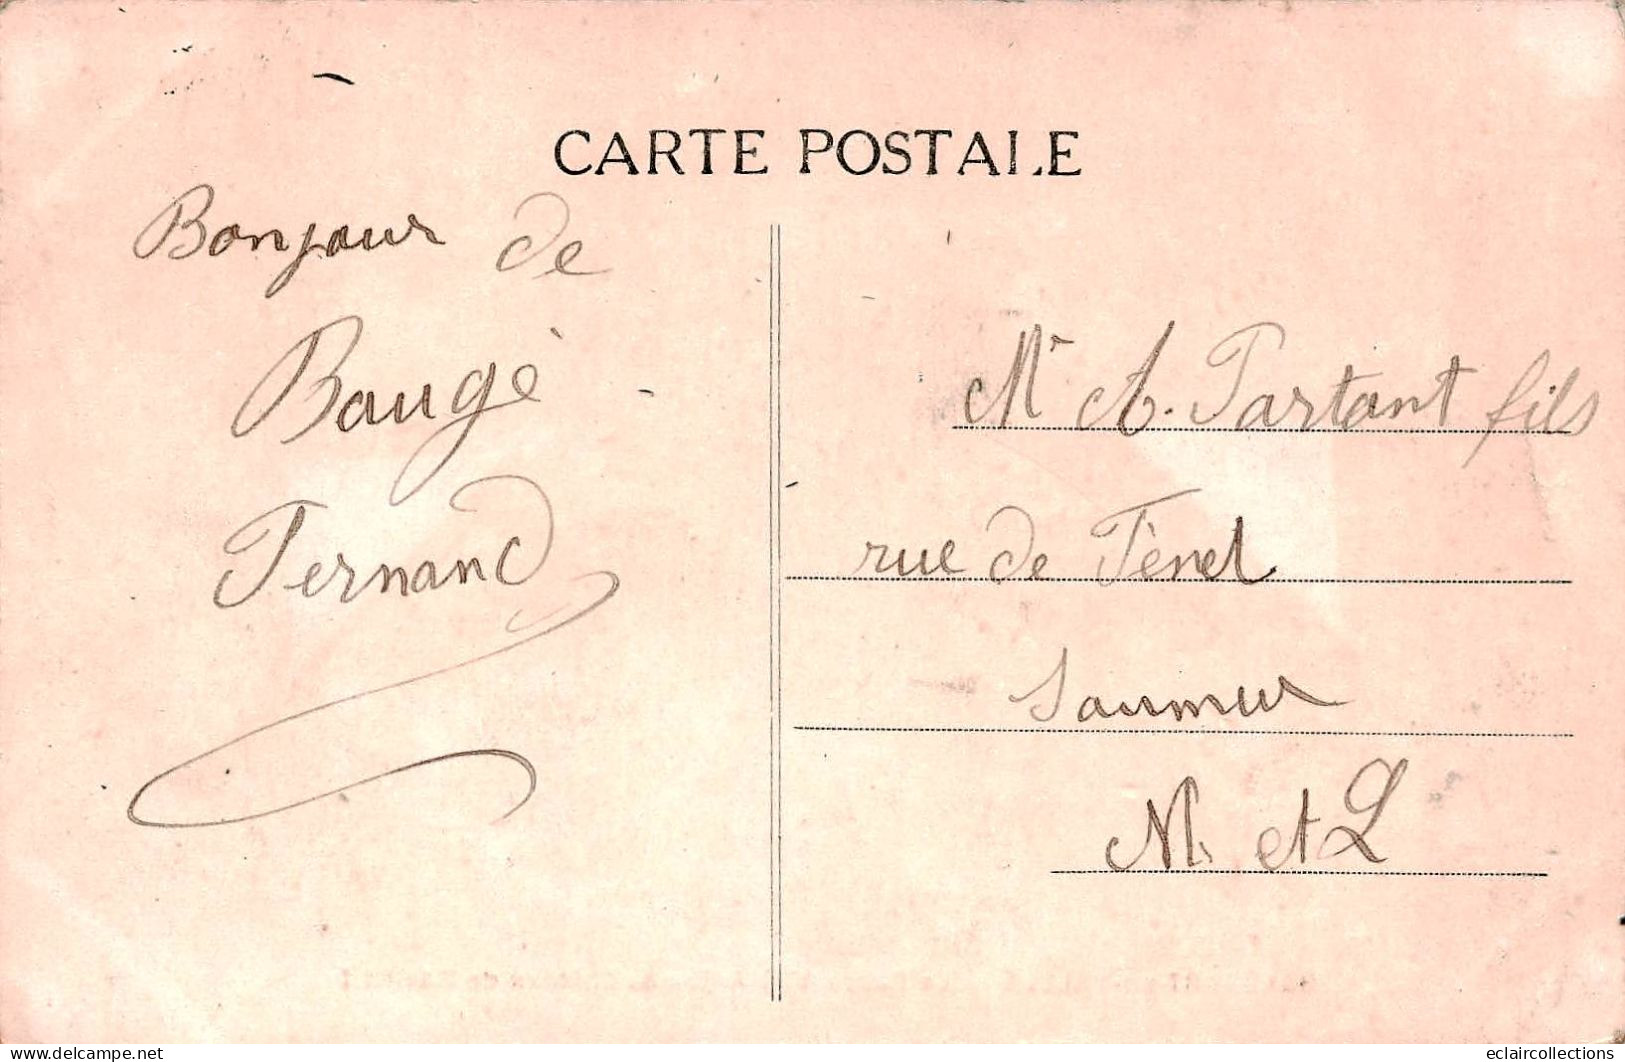 CARTE POSTALE
Bonjour de
Baugé
Fernand
Mr A. Partant fils
rue de Fenet
Saumur
M. et L
delcampe.net
eclaircollections